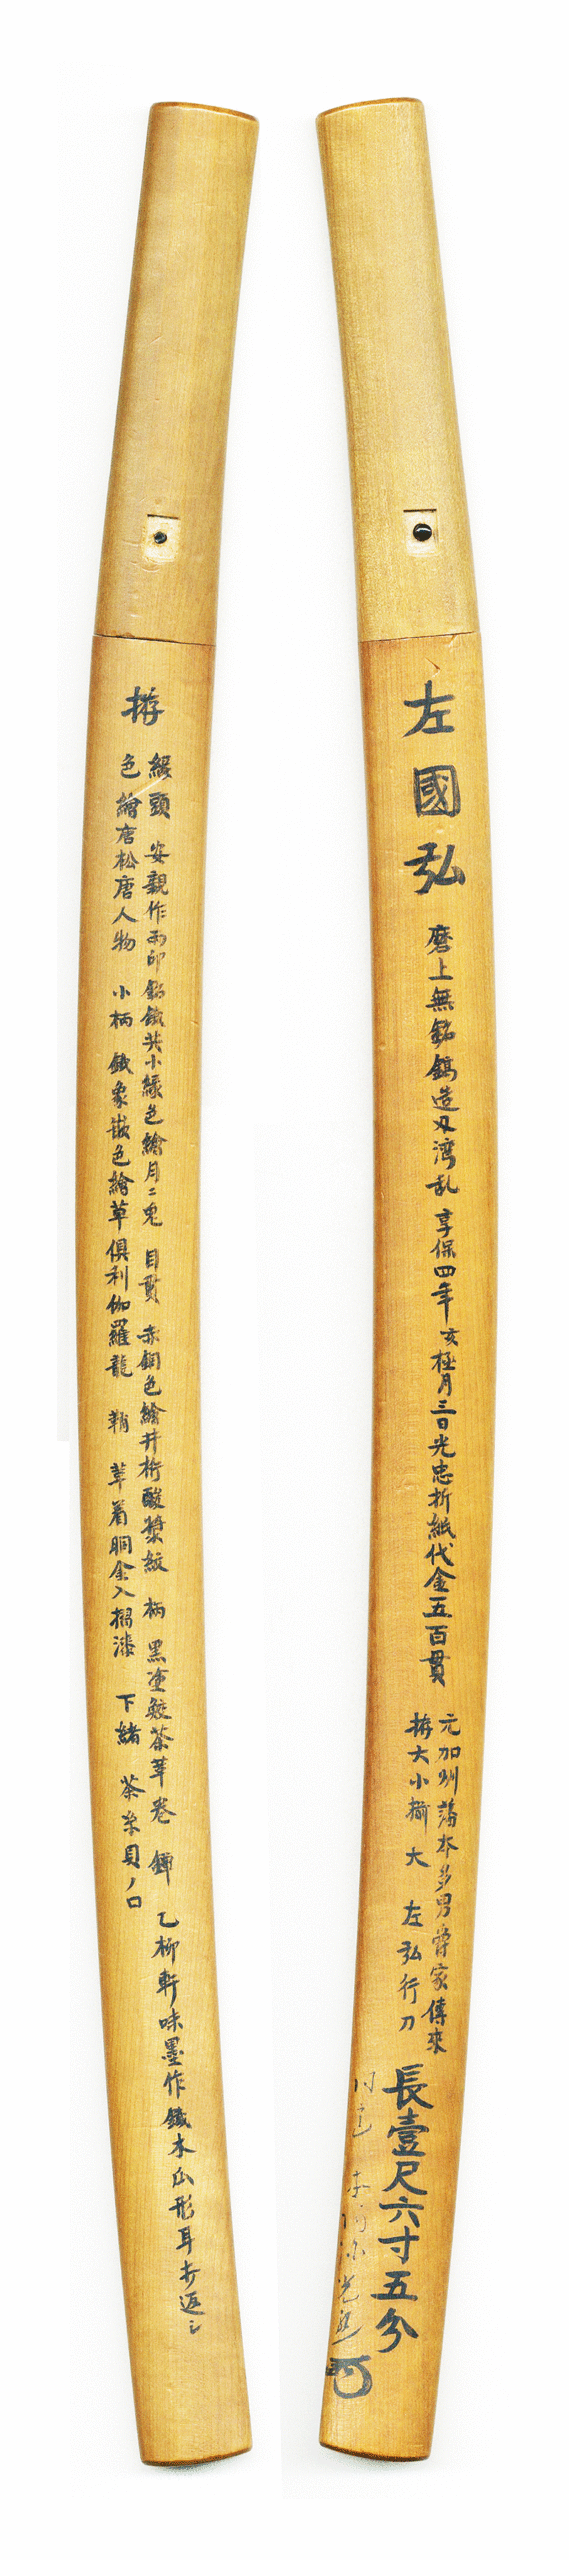 左國弘
磨上無銘鎬造刃湾乱 享保四年亥極月三日光忠折紙代金五百貫
元加州藩本多男爵家傳來
拵大小揃 大 左弘行刀
長壹尺六寸五分
拵
縁頭 安親作 銘鐵共小縁色繪月ニ兎 目貫 赤銅色繪井桁酸漿紋 柄 黒塗鮫茶革巻 鍔 乙柳軒味墨作鐵木瓜形耳打返シ
色繪唐松唐人物 小柄 鐵象嵌色繪草倶利伽羅龍 鞘 革着胴金入摺漆 下緒 茶糸貝ノ口